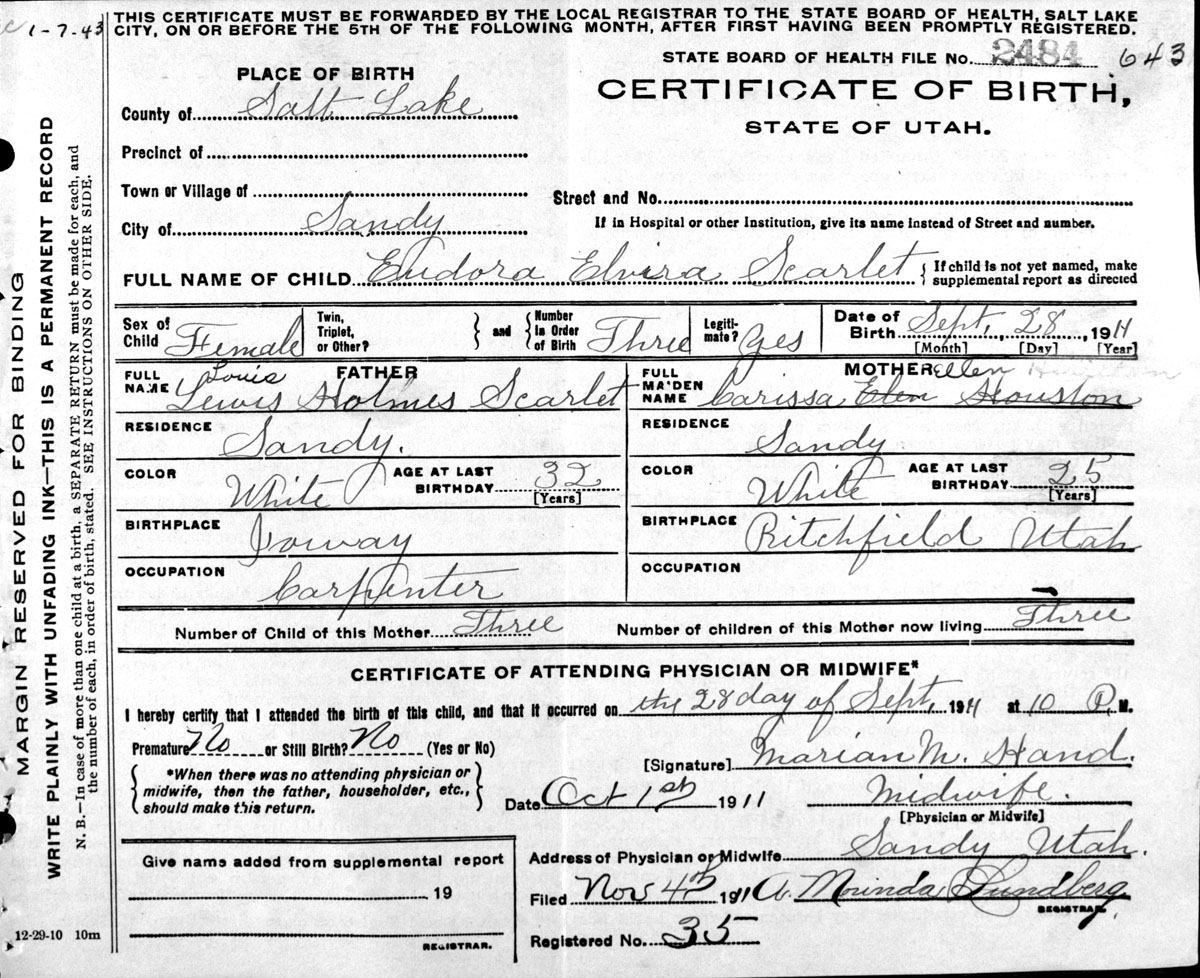 1-7-43
THIS CERTIFICATE MUST BE FORWARDED BY THE LOCAL REGISTRAR TO THE STATE BOARD OF HEALTH, SALT LAKE
CITY, ON OR BEFORE THE 5TH OF THE FOLLOWING MONTH, AFTER FIRST HAVING BEEN PROMPTLY REGISTERED.
STATE BOARD OF HEALTH FILE No. 2484 643
PLACE OF BIRTH
CERTIFICATE OF BIRTH,
STATE OF UTAH.
County of Salt Lake
Precinct of
Town or Village of
Street and No.
City of Sandy
If in Hospital or other Institution, give its name instead of Street and number.
FULL NAME OF CHILD Eudora Elvira Scarlet { If child is not yet named, make
supplemental report as directed
Sex of Child Female
Twin, Triplet, or Other? } and { Number in Order of Birth Three
Legiti-mate? Yes
Date of Birth Sept, 28 1911
[Month] [Day] [Year]
FATHER
FULL NAME Louis Lewis Holmes Scarlet
MOTHER
FULL MAIDEN NAME Carissa Elen Ellen Houston
RESIDENCE Sandy.
RESIDENCE Sandy
COLOR White AGE AT LAST BIRTHDAY 32 [Years]
COLOR White AGE AT LAST BIRTHDAY 25 [Years]
BIRTHPLACE Ioway
BIRTHPLACE Ritchfield Utah
OCCUPATION Carpenter
OCCUPATION
Number of Child of this Mother Three
Number of children of this Mother now living Three
CERTIFICATE OF ATTENDING PHYSICIAN OR MIDWIFE*
I hereby certify that I attended the birth of this child, and that it occurred on the 28 day of Sept, 1911 at 10 P. M.
Premature No or Still Birth? No (Yes or No)
[Signature] Marian M. Hand.
{ *When there was no attending physician or
midwife, then the father, householder, etc.,
should make this return. }
Date Oct 1st 1911 Midwife.
[Physician or Midwife]
Give name added from supplemental report
19
REGISTRAR.
Address of Physician or Midwife Sandy Utah.
Filed Nov 4th 1911 A. Morinda Lundberg
REGISTRAR.
Registered No. 35
12-29-10 10m
MARGIN RESERVED FOR BINDING
WRITE PLAINLY WITH UNFADING INK—THIS IS A PERMANENT RECORD
N. B.—In case of more than one child at a birth, a SEPARATE RETURN must be made for each, and
the number of each, in order of birth, stated. SEE INSTRUCTIONS ON OTHER SIDE.